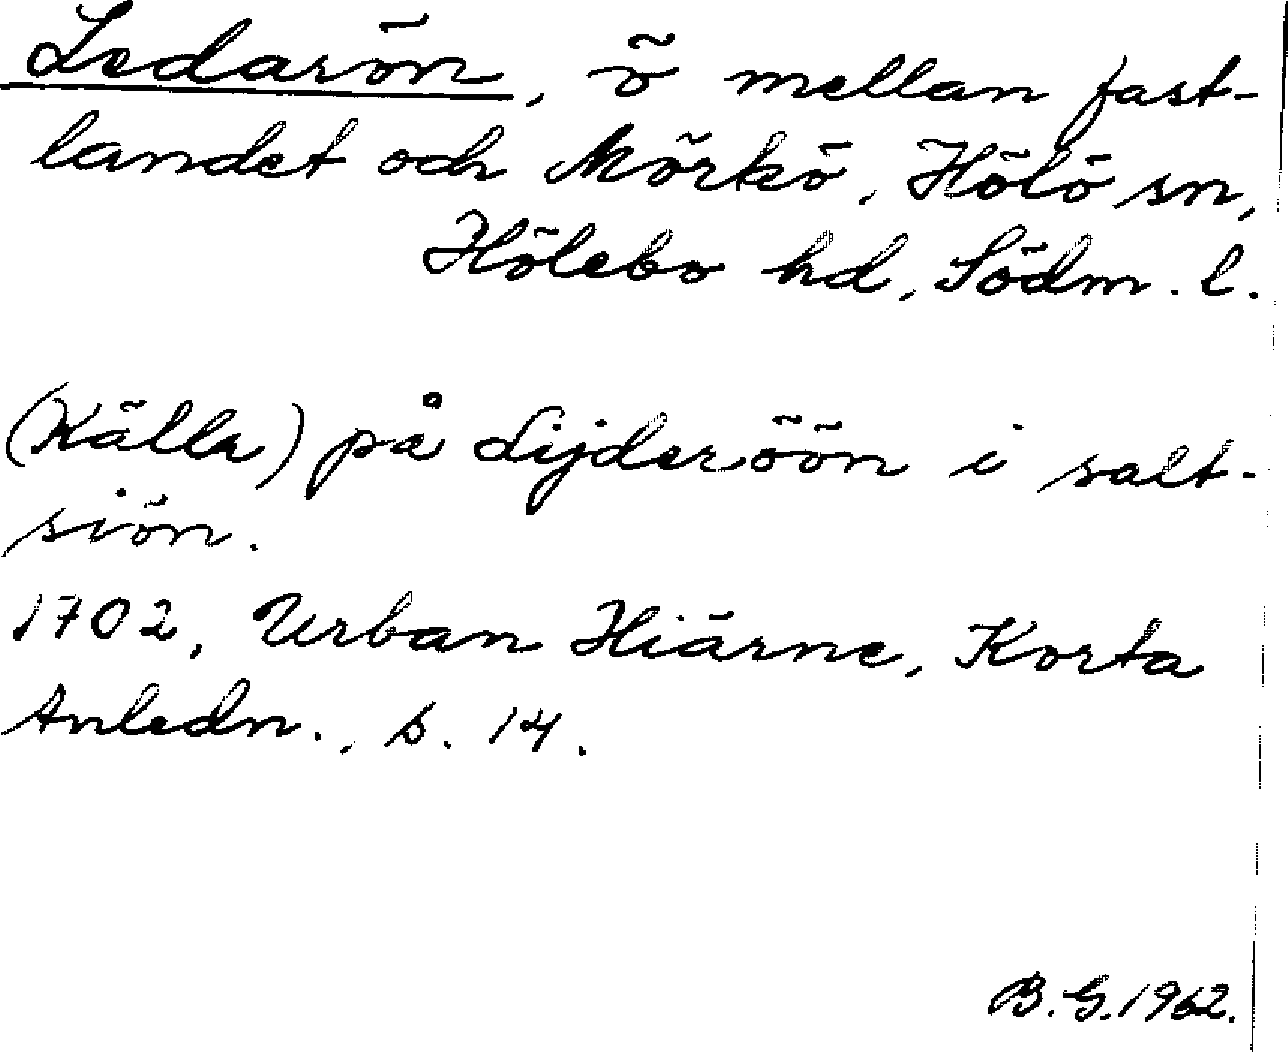 Ledarön, ö mellan fast-
landet och Mörkö, Hölö sn,
Hölebo hd, Södm. l.
(Källa) på Lijderöön i salt-
siön.
1702, Urban Hiärne, Korta
Anledn., s. 14.
B. G. 1962.